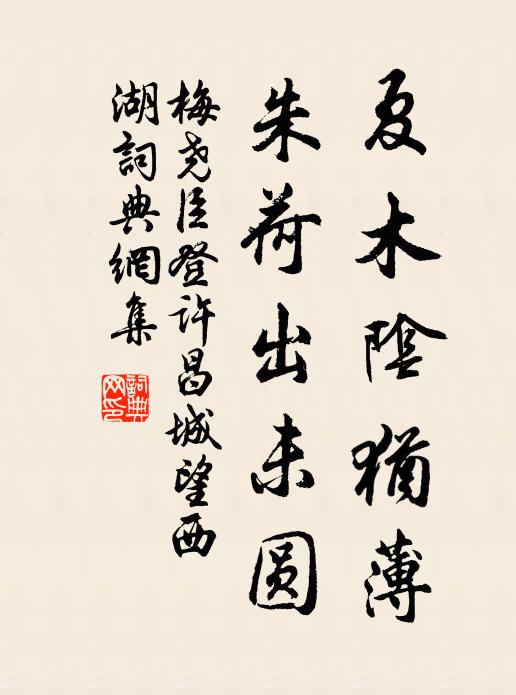 夏木陰猶薄
朱荷出未圆
梅尧臣登许昌城望西
湖詞典網集
詞典
网印